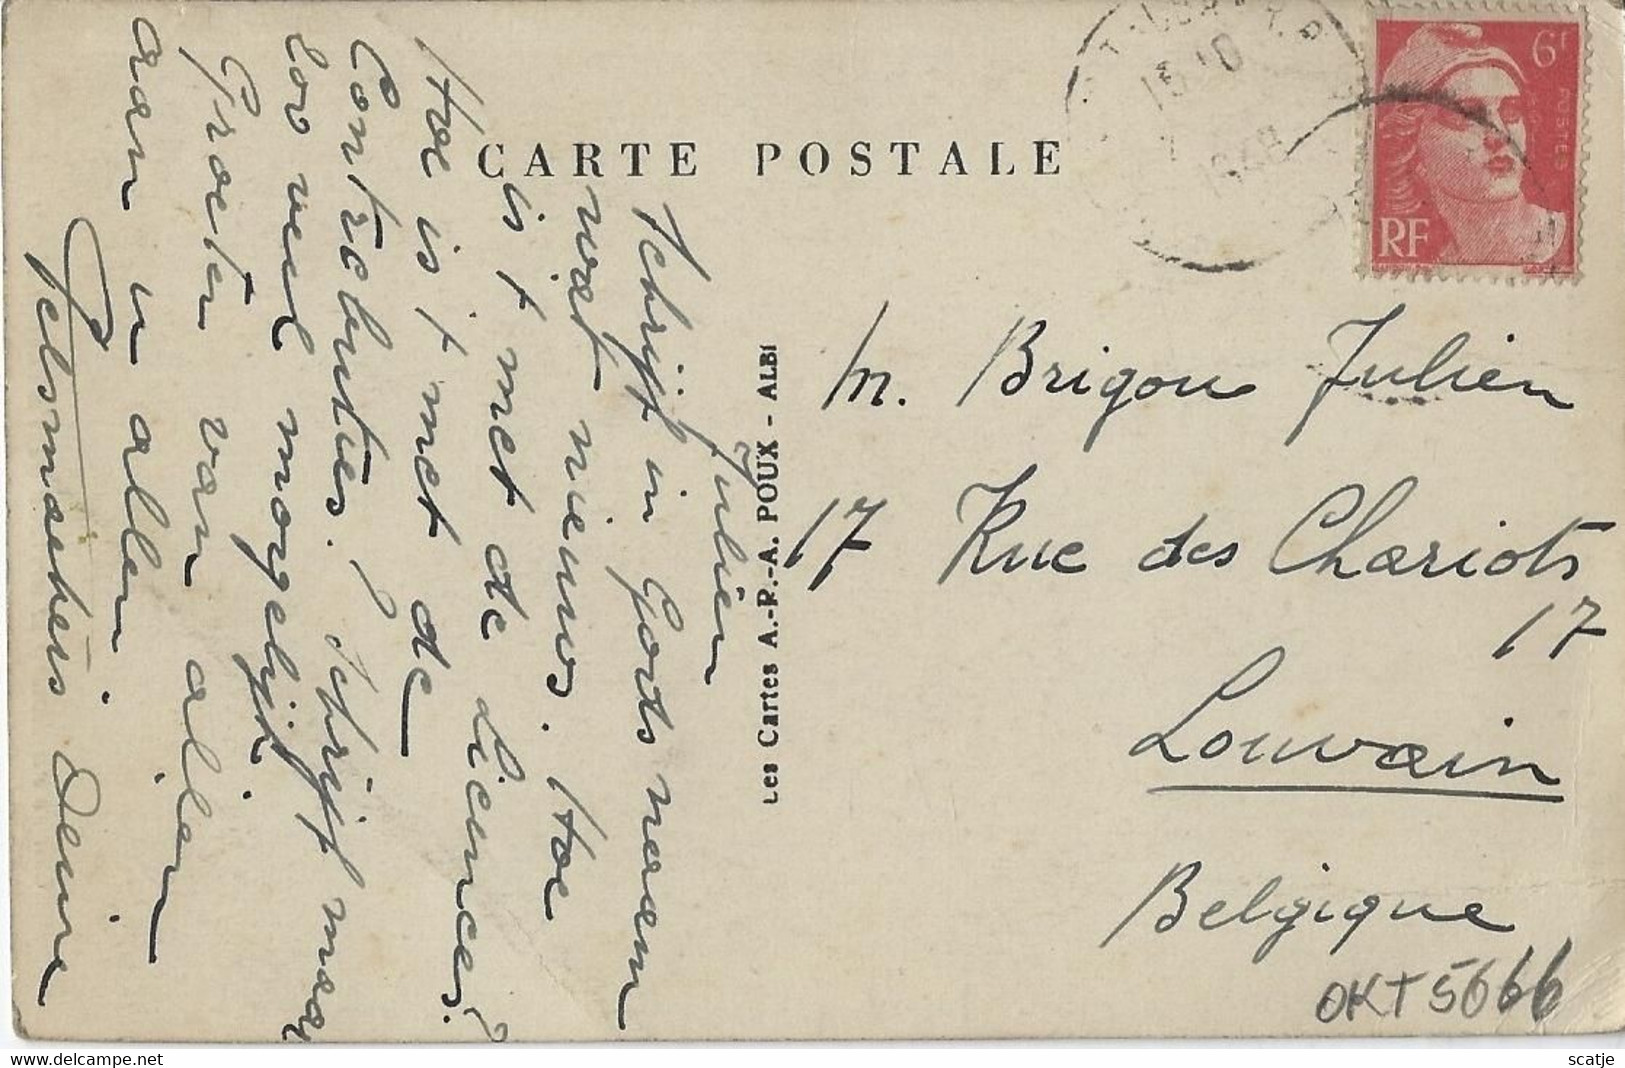 CARTE POSTALE
6F
POSTES
RF
1948
Julien
Schrijf in Gods naam
wat nieuws. Hoe
is 't met de Licences?
Hoe is 't met de
Contributies? Schrijf maar
zoo veel mogelijk.
Groeten van allen
aan u allen
Les Cartes A.-P.-A. POUX - ALBI
M. Brigou Julien
17 Rue des Chariots
17
Louvain
Belgique
OKT 5666
© delcampe.net
scatje